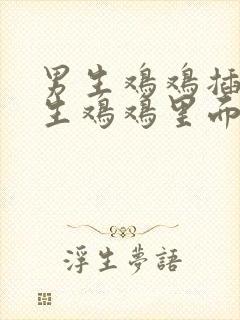 男生鸡鸡插
生鸡鸡里而
浮生夢語